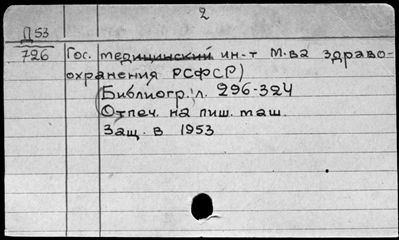 2
Д 53
726
Гос. медицинский ин-т М-ва здраво-
охранения РСФСР)
(Библиогр. л. 296-324
Отпеч. на пиш. маш.
Защ. в 1953